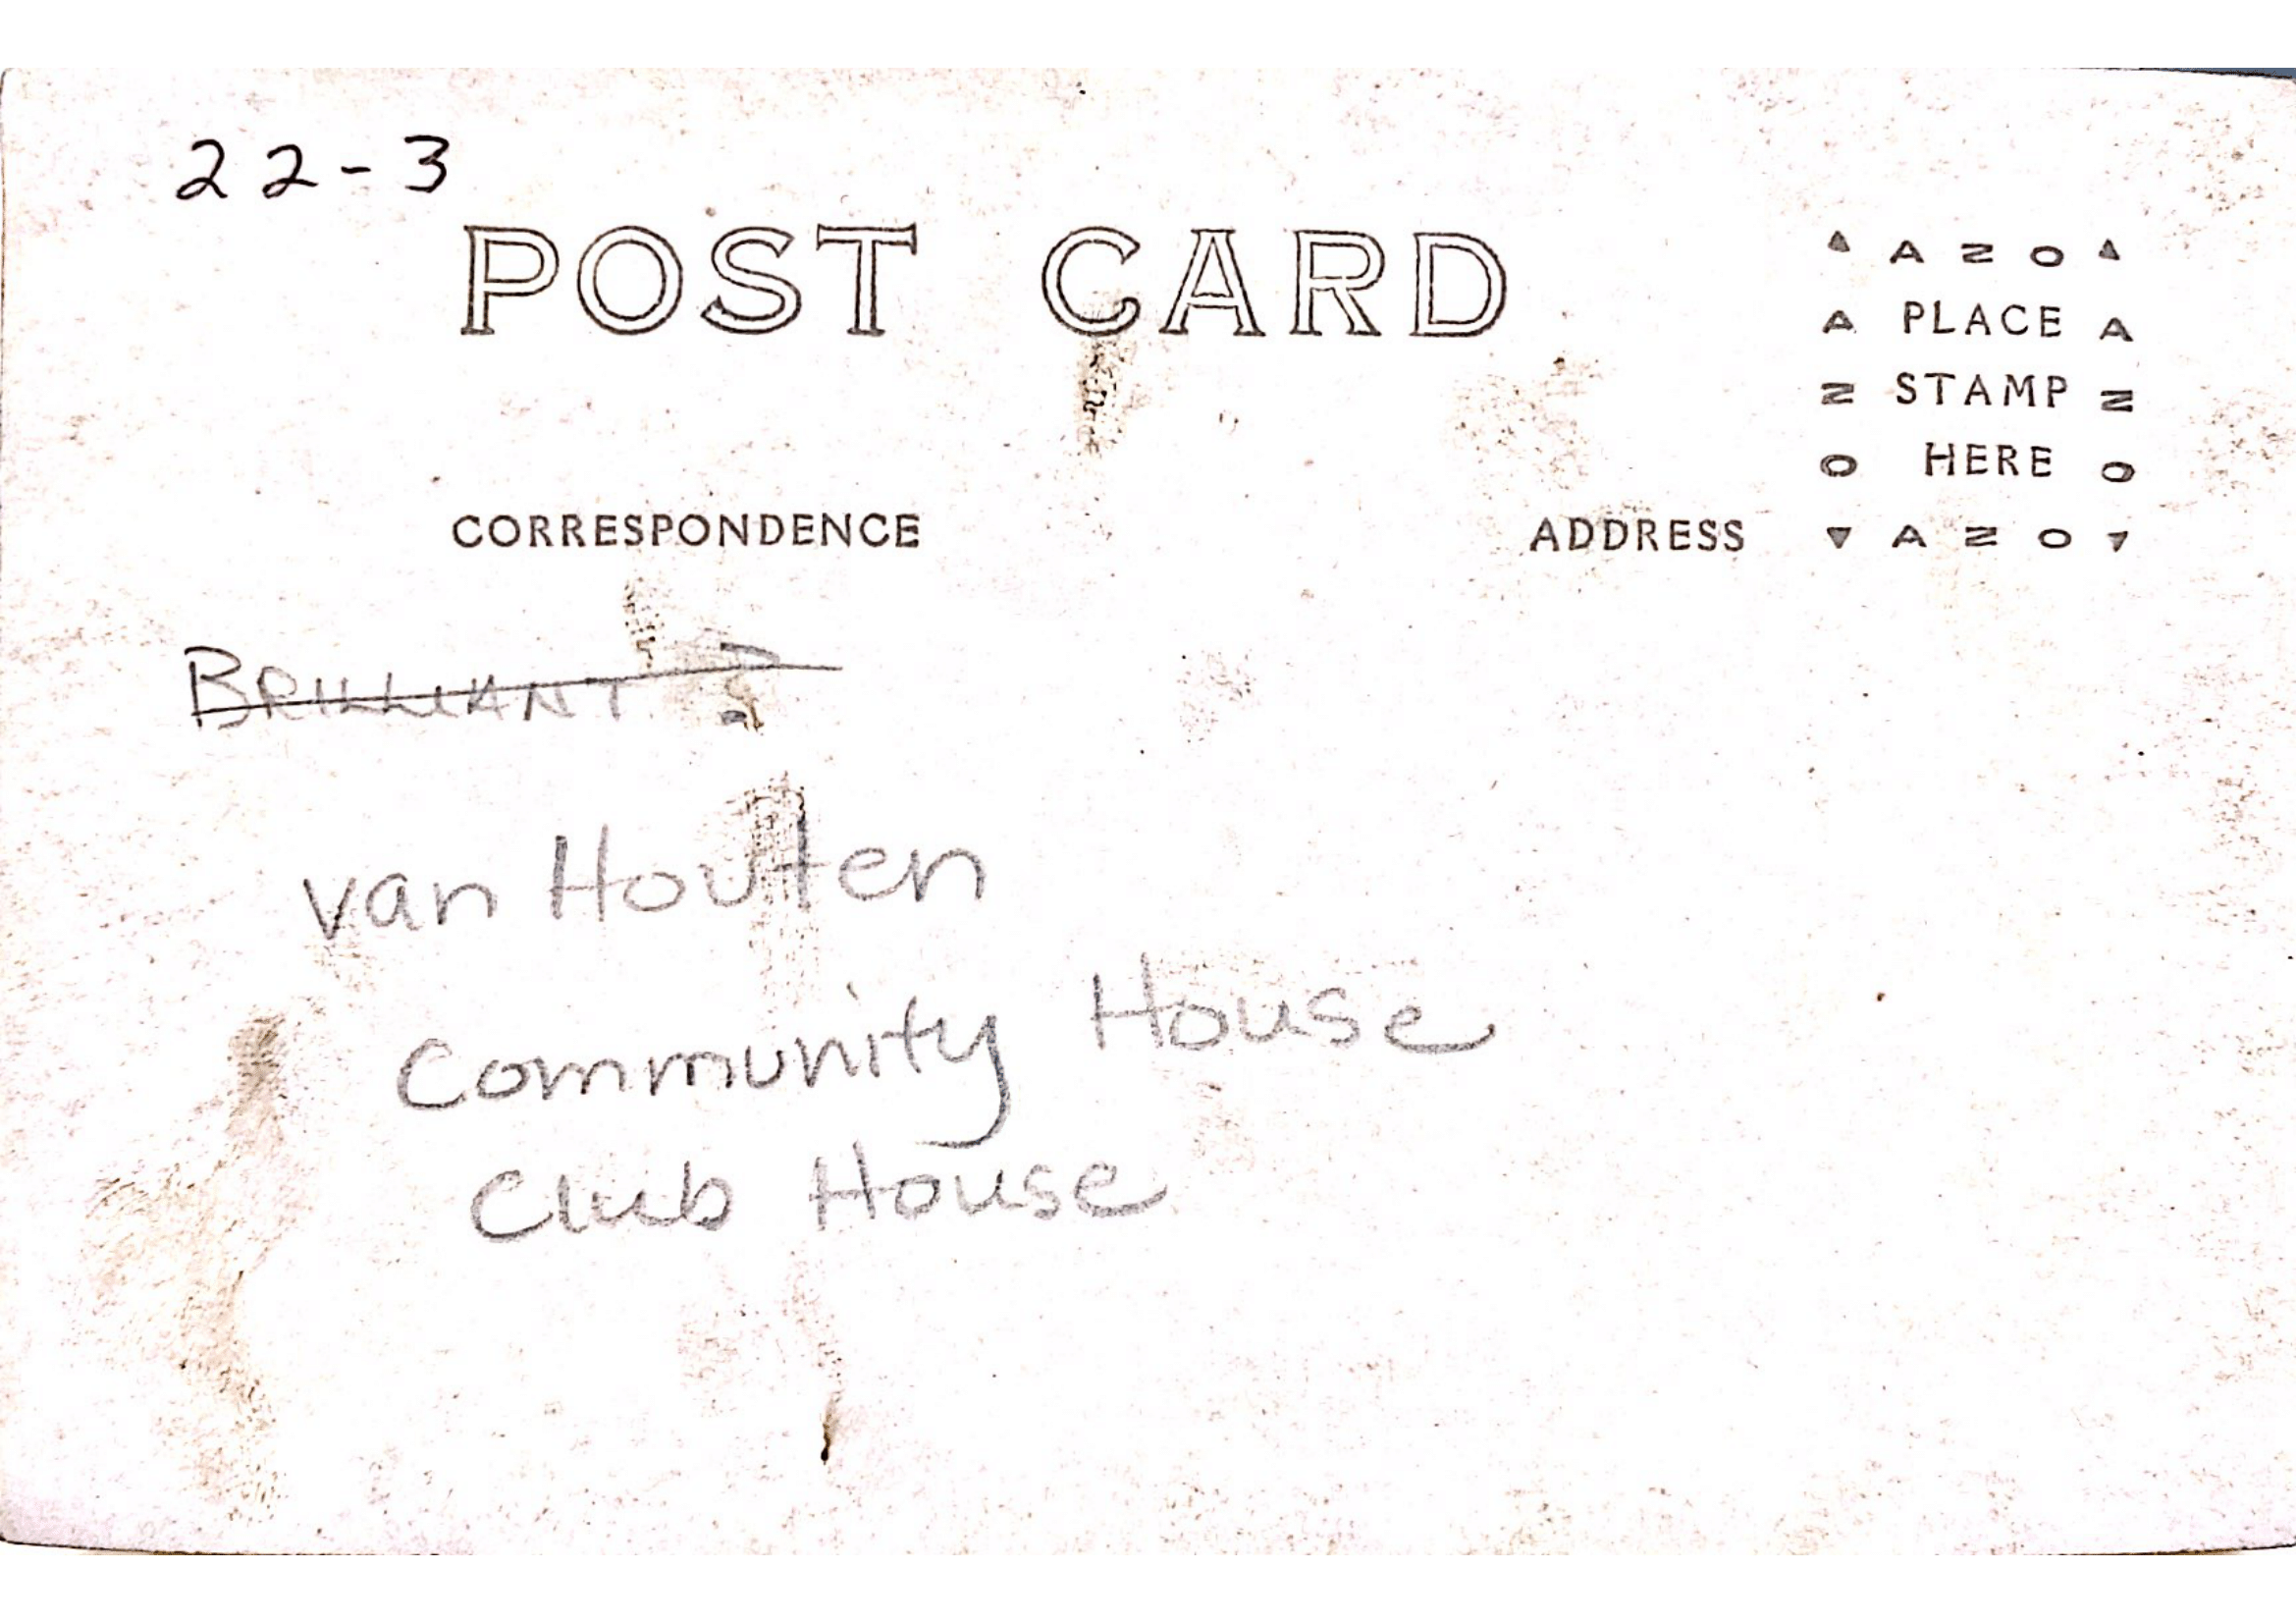 22-3
POST CARD
▲ AZO ▲
A PLACE A
Z STAMP Z
O HERE O
▼ AZO ▼
CORRESPONDENCE
ADDRESS
BRILLIANT ?
van Houten
Community House
Club House